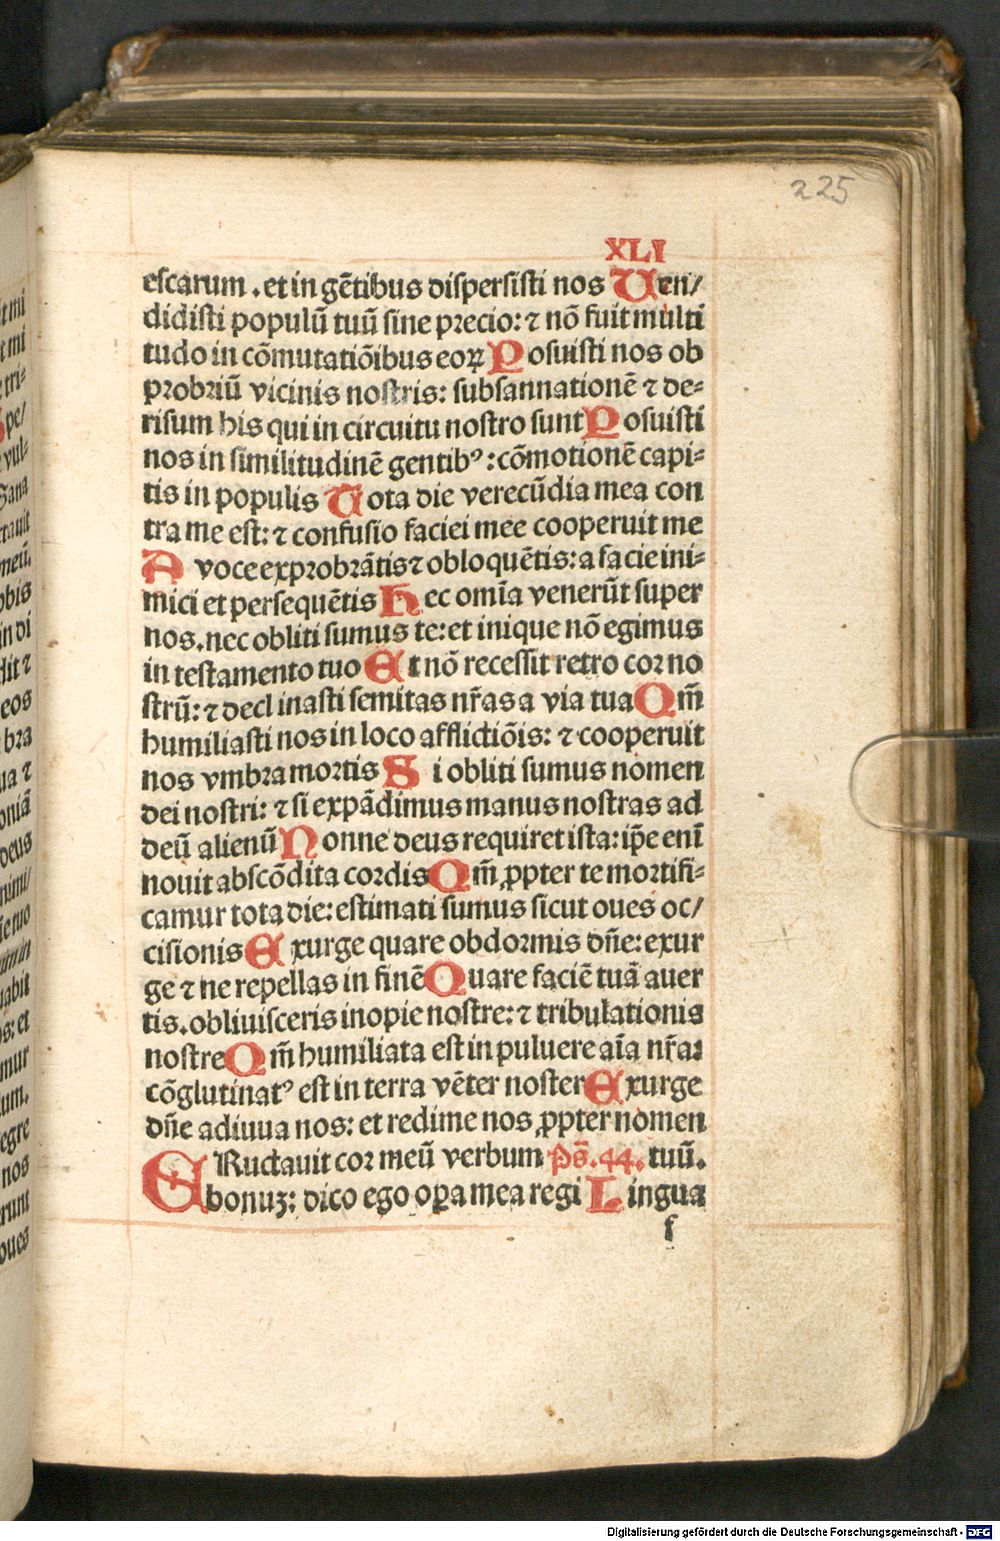 225
XLI
escarum . et in gẽtibus dispersisti nos Uen/
didisti populũ tuũ sine precio: ⁊ nõ fuit multi
tudo in cõmutatiõibus eoꝝ Posuisti nos ob
probriũ vicinis nostris: subsannationẽ ⁊ de⸗
risum his qui in circuitu nostro sunt Posuisti
nos in similitudinẽ gentibꝰ: cõmotionẽ capi⸗
tis in populis Tota die verecũdia mea con
tra me est: ⁊ confusio faciei mee cooperuit me
A voce exprobrãtis ⁊ obloquẽtis: a facie ini⸗
mici et persequẽtis Hec omĩa venerũt super
nos. nec obliti sumus te: et inique nõ egimus
in testamento tuo Et nõ recessit retro cor no
strũ: ⁊ declinasti semitas nr̃as a via tua Qm̃
humiliasti nos in loco afflictiõis: ⁊ cooperuit
nos vmbra mortis Si obliti sumus nomen
dei nostri: ⁊ si expãdimus manus nostras ad
deũ alienũ Nonne deus requiret ista: ip̃e enĩ
novit abscõdita cordis Qm̃ ꝓpter te mortifi⸗
camur tota die: estimati sumus sicut oues oc/
cisionis Exurge quare obdormis dñe: exur
ge ⁊ ne repellas in finẽ Quare faciẽ tuã auer
tis. obliuisceris inopie nostre: ⁊ tribulationis
nostre Qm̃ humiliata est in puluere aĩa nr̃a:
cõglutinatꝰ est in terra vẽter noster Exurge
dñe adiuua nos: et redime nos ꝓpter nomen
ERuctauit cor meũ verbum Ps̃. 44. tuũ.
bonuꝫ: dico ego oꝑa mea regi Lingua
f
Digitalisierung gefördert durch die Deutsche Forschungsgemeinschaft - DFG